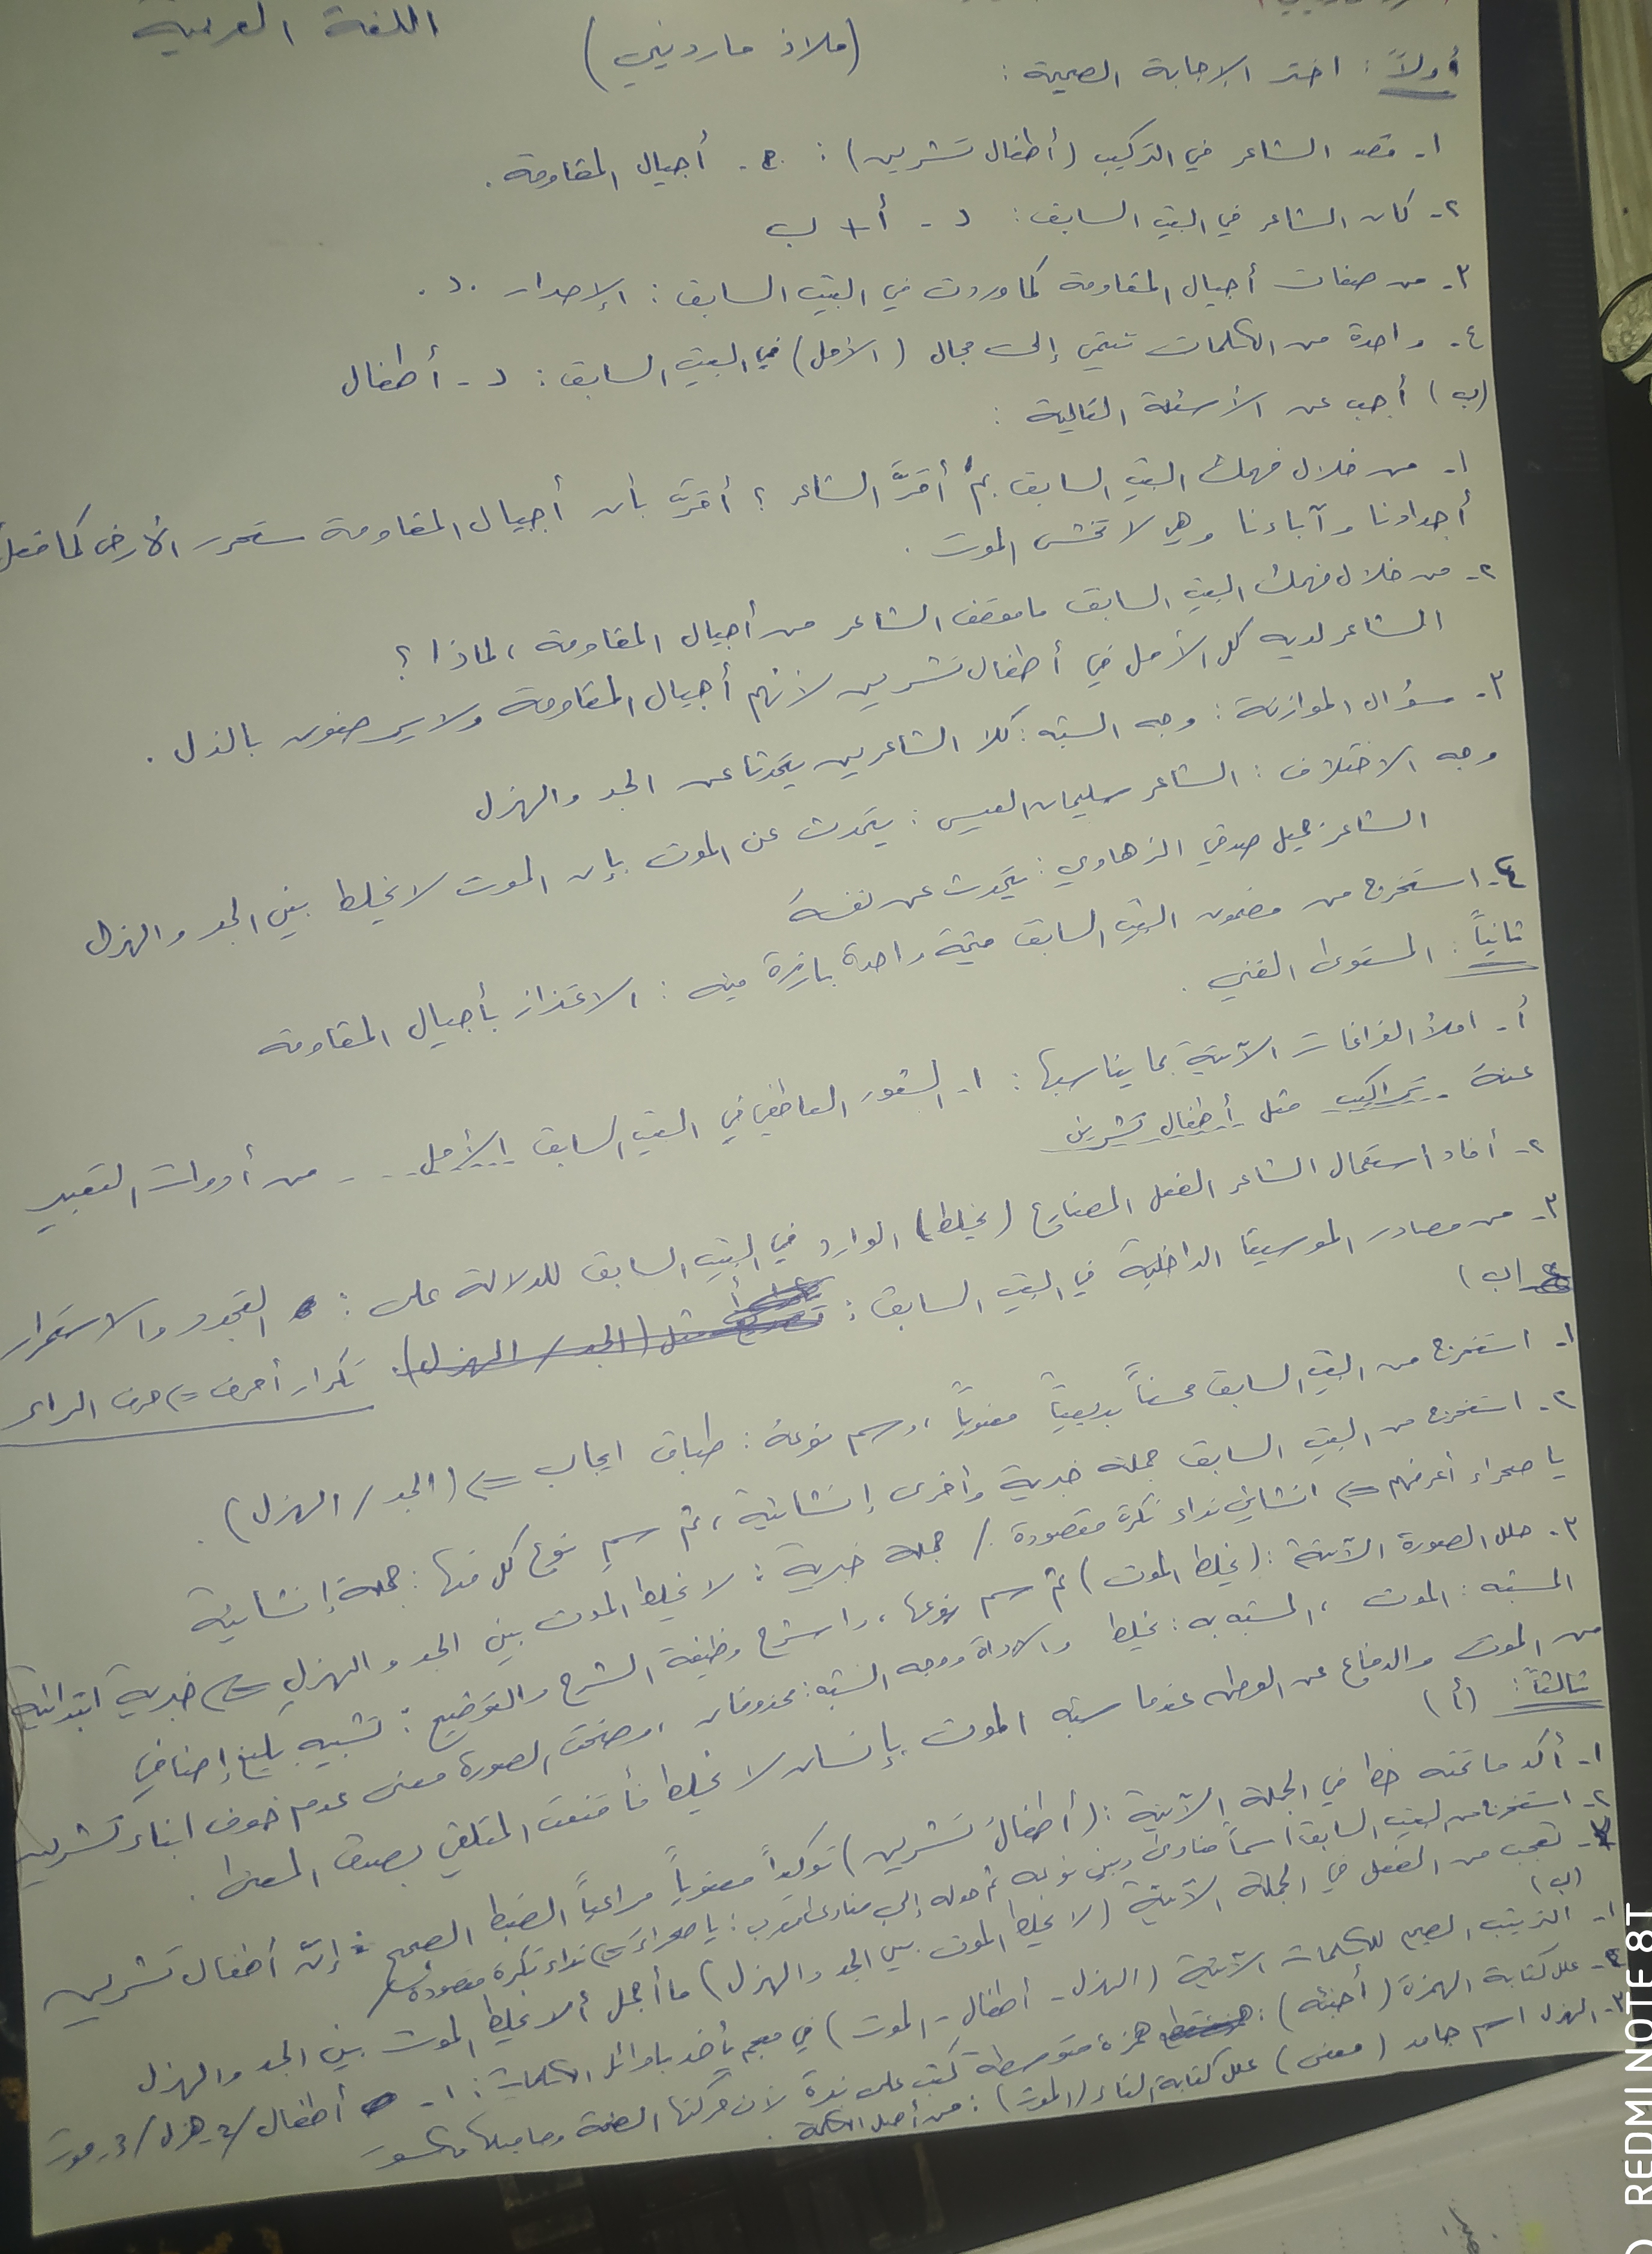 اللغة العربية
(ملاذ مارديني)
أولاً: اختر الإجابة الصحيحة:
١- قصد الشاعر في التركيب (أطفال تشرين): ج- أجيال المقاومة.
٢- كان الشاعر في البيت السابق: د- أ+ب
٣- من صفات أجيال المقاومة كما وردت في البيت السابق: الإصرار .د.
٤- واحدة من الكلمات تنتمي إلى مجال (الأمل) في البيت السابق: د- أطفال
(ب) أجب عن الأسئلة التالية:
١- من خلال فهمك البيت السابق بمَ أقرَّ الشاعر؟ أقرّ بأن أجيال المقاومة ستحرر الأرض كما فعل
أجدادنا وآباءنا وهي لا تخشى الموت.
٢- من خلال فهمك البيت السابق ما موقف الشاعر من أجيال المقاومة، لماذا؟
الشاعر لديه كل الأمل في أطفال تشرين لأنهم أجيال المقاومة ولا يرضون بالذل.
٣- سؤال الموازنة: وجه الشبه: كلا الشاعرين يتحدثا عن الجد والهزل
وجه الاختلاف: الشاعر سليمان العيسى: يتحدث عن الموت بإن الموت لا يخلط بين الجد والهزل
الشاعر جميل صدقي الزهاوي: يتحدث عن نفسه
٤- استخرج من مضمون البيت السابق قيمة واحدة بارزة فيه: الاعتزاز بأجيال المقاومة
ثانياً: المستوى الفني.
أ- املأ الفراغات الآتية بما يناسبها: ١- الشعور العاطفي في البيت السابق الأمل... من أدوات التعبير
عنه تراكيب مثل أطفال تشرين
٢- أفاد استعمال الشاعر الفعل المضارع (يخلط) الوارد في البيت السابق للدلالة على: التجدد والاستمرار
٣- من مصادر الموسيقا الداخلية في البيت السابق: تكرار أحرف => حرف الراء
(ب)
١- استخرج من البيت السابق محسناً بديعياً معنوياً، وسم نوعه: طباق ايجاب => (الجد / الهزل).
٢- استخرج من البيت السابق جملة خبرية وأخرى إنشائية، ثم سم نوع كل منها: جملة إنشائية
يا صحراء أعرفهم => انشائي نداء نكرة مقصودة / جملة خبرية: لا يخلط الموت بين الجد والهزل => خبرية ابتدائية
٣- حلل الصورة الآتية: (يخلط الموت) ثم سم نوعها، واشرح وظيفة الشرح والتوضيح: تشبيه بليغ إضافي
المشبه: الموت، المشبه به: يخلط والاداة ووجه الشبه: محذوفان، وضحت الصورة معنى عدم خوف ابناء تشرين
من الموت والدفاع عن الوطن عندما شبه الموت بإنسان لا يخلط فأقنعت المتلقي بصدق المعنى.
ثالثاً: (أ)
١- أكد ما تحته خط في الجملة الآتية: (أطفال تشرين) توكيداً معنوياً مراعياً الضبط الصحيح: إنّ أطفال تشرين
٢- استخرج من البيت السابق اسماً منادى وبين نوعه ثم حوله إلى منادى معرب: يا صحراء => نداء نكرة مقصودة
- تعجب من الفعل في الجملة الآتية (لا يخلط الموت بين الجد والهزل) ما أجمل ألا يخلط الموت بين الجد والهزل
(ب)
١- الترتيب الصحيح للكلمات الآتية (الهزل - أطفال - الموت) في معجم يأخذ بأوائل الكلمات: ١- أطفال /2- هزل /3- موت
٢- علل كتابة الهمزة (أجنئه): همزة متوسطة كتبت على نبرة لأن حركتها الضمة وما قبلها مكسور
٣- الهزل اسم جامد (معنى) علل كتابة التاء (الموت): من أصل الكلمة.
REDMI NOTE 8T